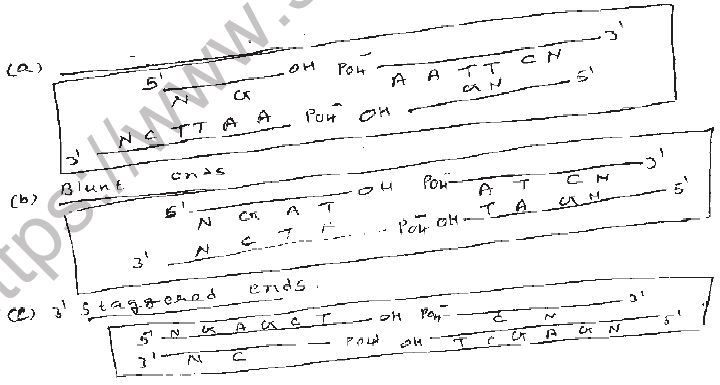 (a)
5' N G OH PO4- A A T T C N 3'
3' N C T T A A PO4- OH G N 5'
(b) Blunt ends
5' N G A T OH PO4- A T C N 3'
3' N C T PO4- OH T A G N 5'
(c) 3' Staggered ends.
5' N G A G C T OH PO4- C N 3'
3' N C PO4 OH T C G A G N 5'
ttps://www.s